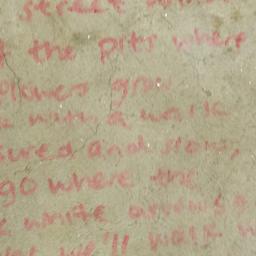 street
the pits where
flowers grow
with a walk
sured and slow,
go where the
white arrows
we'll walk